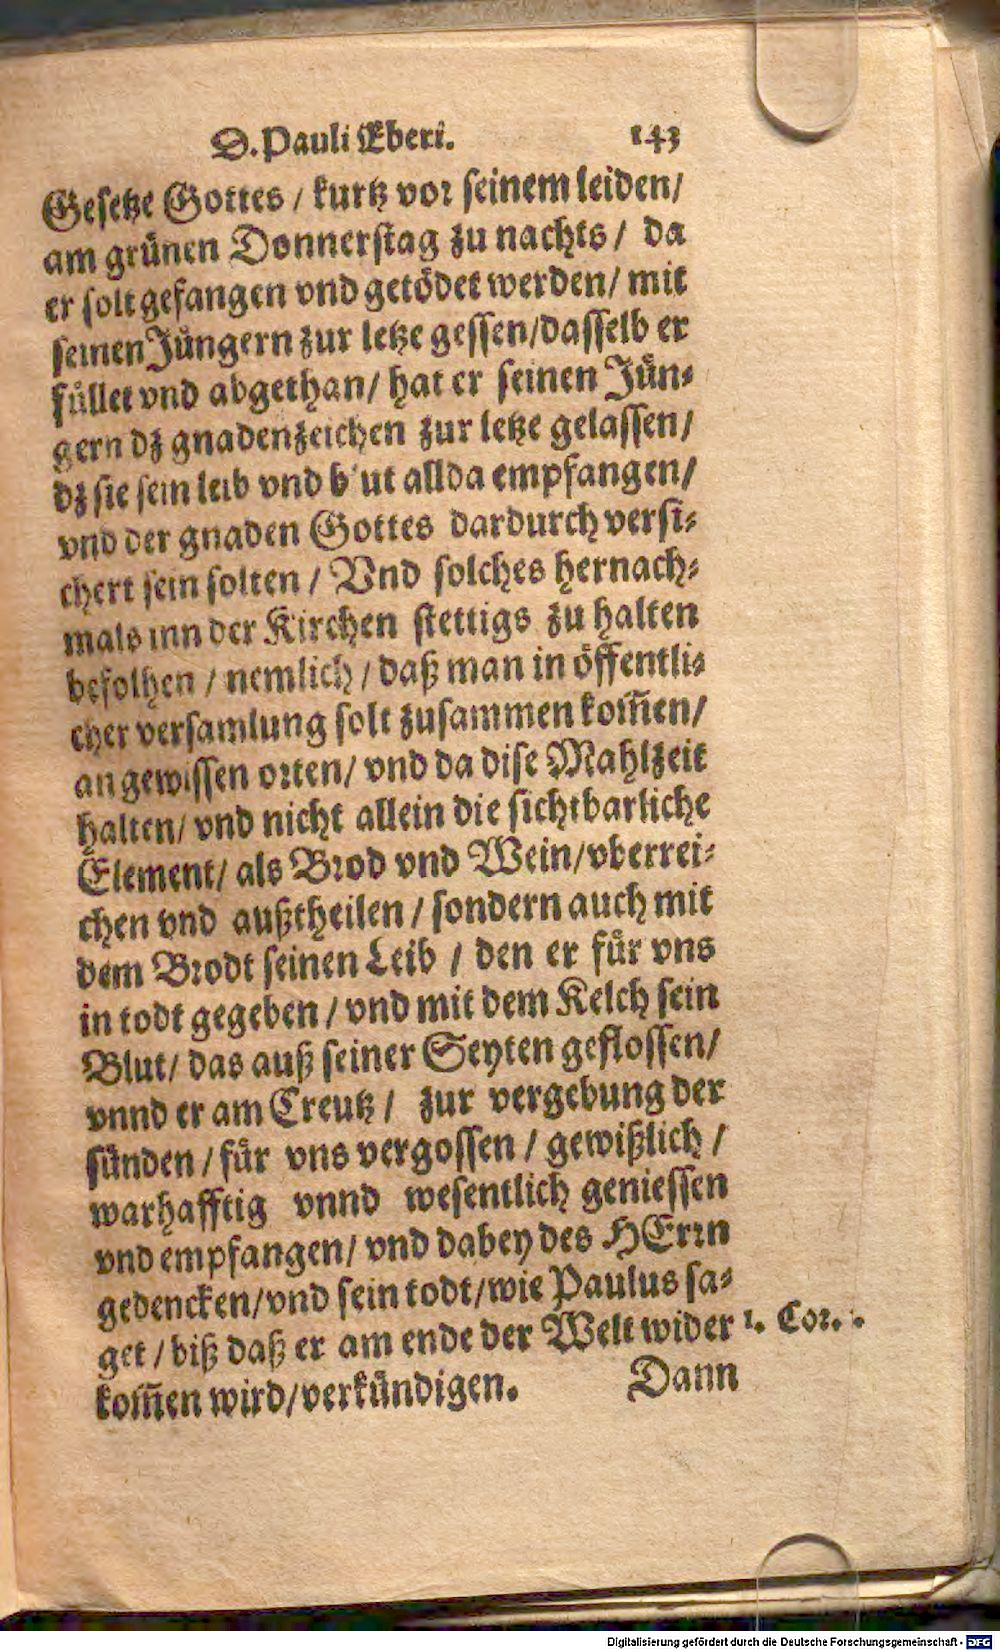 D. Pauli Eberi. 143
Gesetze Gottes / kurtz vor seinem leiden/
am grünen Donnerstag zu nachts / da
er solt gefangen vnd getödet werden/ mit
seinen Jüngern zur letze gessen/dasselb er
füllet vnd abgethan/ hat er seinen Jün⸗
gern dz gnadenzeichen zur letze gelassen/
dz sie sein leib vnd b'ut allda empfangen/
vnd der gnaden Gottes dardurch versi⸗
chert sein solten / Vnd solches hernach⸗
mals inn der Kirchen stettigs zu halten
befolhen / nemlich / daß man in öffentli⸗
cher versamlung solt zusammen kom̃en/
an gewissen orten/ vnd da dise Mahlzeit
halten/ vnd nicht allein die sichtbarliche
Element/ als Brod vnd Wein/vberrei⸗
chen vnd außtheilen / sondern auch mit
dem Brodt seinen Leib / den er für vns
in todt gegeben / vnd mit dem Kelch sein
Blut/ das auß seiner Seyten geflossen/
vnnd er am Creutz / zur vergebung der
sünden / für vns vergossen / gewißlich /
warhafftig vnnd wesentlich geniessen
vnd empfangen/ vnd dabey des HErrn
gedencken/vnd sein todt/wie Paulus sa⸗
get / biß daß er am ende der Welt wider 1. Cor.
kom̃en wird/verkündigen. Dann
Digitalisierung gefördert durch die Deutsche Forschungsgemeinschaft - DFG